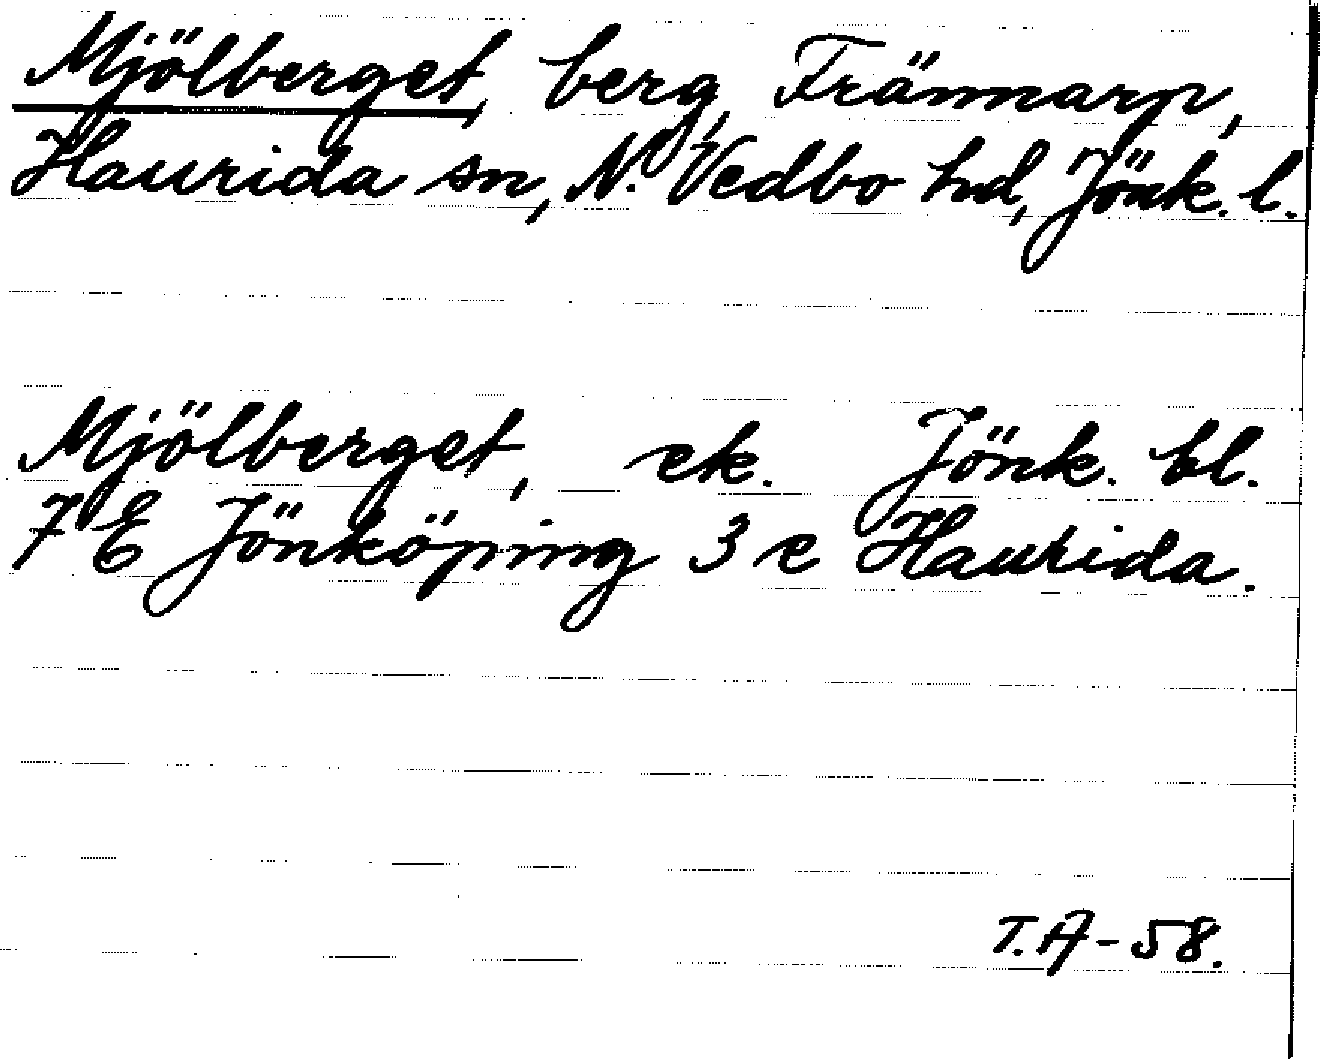 Mjölberget, berg, Frännarp,
Haurida sn, N. Vedbo hd, Jönk. l.
Mjölberget, ek. Jönk. bl.
7 E Jönköping 3 e Haurida.
T.A-58.